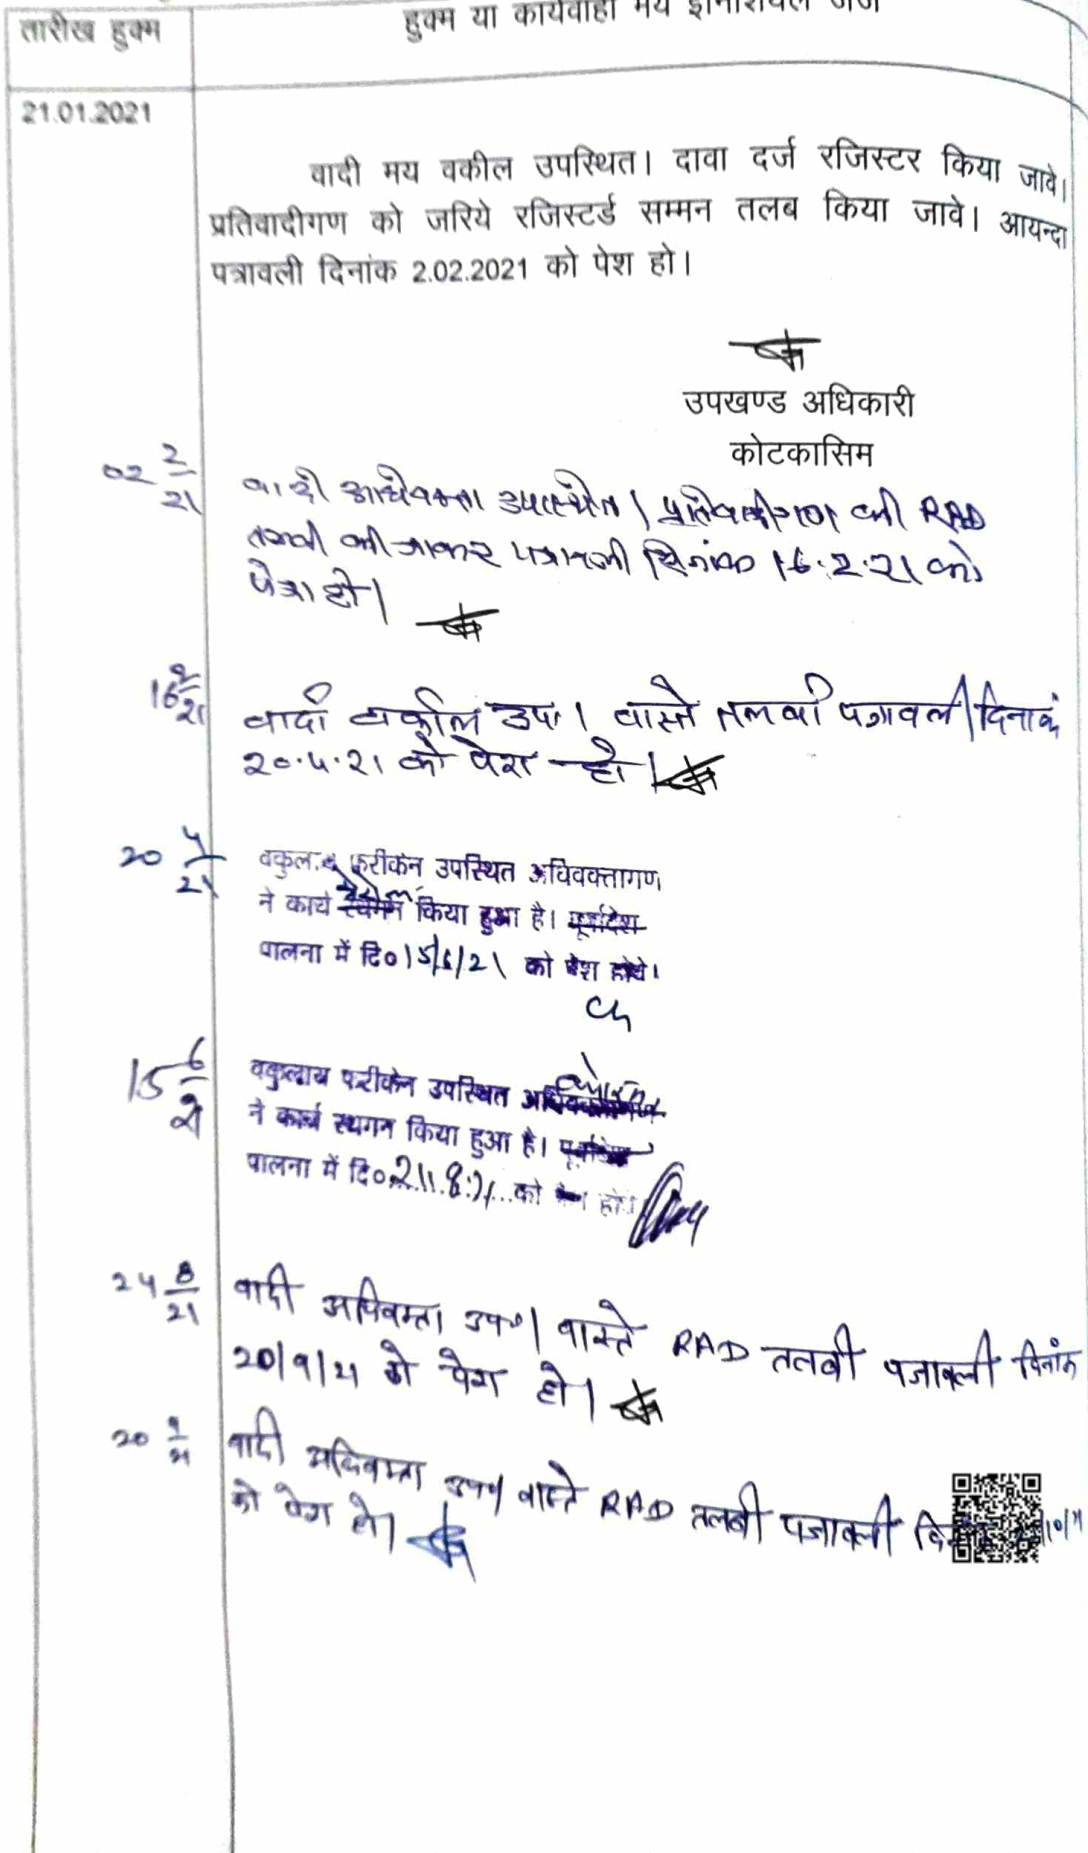 तारीख हुक्म
हुक्म या कार्यवाही मय इनिशियल जज
21.01.2021
वादी मय वकील उपस्थित। दावा दर्ज रजिस्टर किया जावे।
प्रतिवादीगण को जरिये रजिस्टर्ड सम्मन तलब किया जावे। आयन्दा
पत्रावली दिनांक 2.02.2021 को पेश हो।
उपखण्ड अधिकारी
कोटकासिम
02 2/21
वादी अधिवक्ता उपस्थित। प्रतिवादीगण की RAD
तलबी की जाकर पत्रावली दिनांक 16.2.21 को
पेश हो।
16 2/21
वादी वकील उप। वास्ते तलबी पत्रावली दिनांक
20.4.21 को पेश हो।
20 4/21
फरीकेन उपस्थित अधिवक्तागण
ने कार्य किया हुआ है। पूर्वादेश
पालना में दि० 15/6/21 को पेश होवे।
15 6/21
वकुलाय फरीकेन उपस्थित
ने कार्य स्थगन किया हुआ है।
पालना में दि० को हो।
24 8/21
वादी अधिवक्ता उप०। वास्ते RAD तलबी पत्रावली दिनांक
20/9/21 को पेश हो।
20 9/21
वादी अधिवक्ता उप०। वास्ते RAD तलबी पत्रावली
को पेश हो।